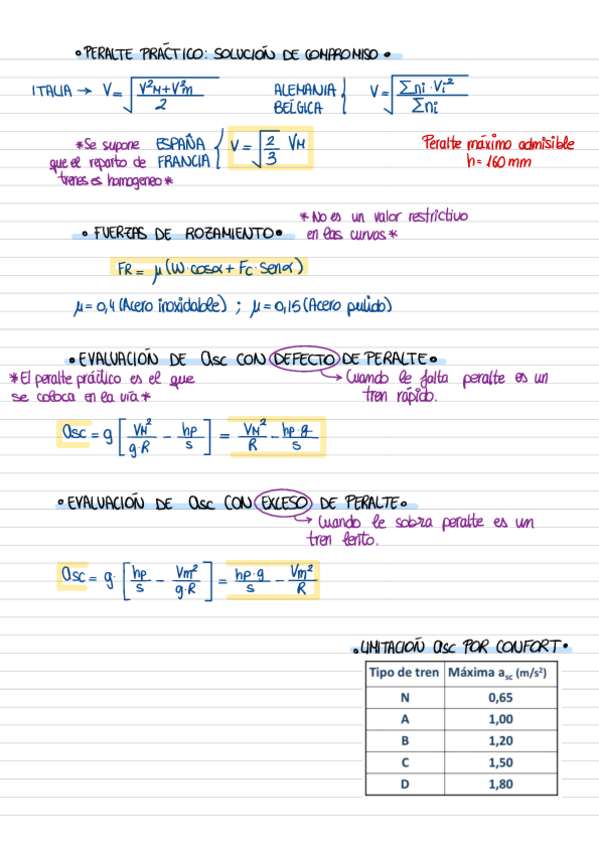 • PERALTE PRÁCTICO: SOLUCIÓN DE COMPROMISO •
ITALIA → V = √((V²M + V²m) / 2)
ALEMANIA
BÉLGICA { V = √(Σni · Vi² / Σni)
*Se supone
que el reparto de
trenes es homogeneo*
ESPAÑA
FRANCIA { V = √(2/3) VM
Peralte máximo admisible
h = 160 mm
• FUERZAS DE ROZAMIENTO •
*No es un valor restrictivo
en las curvas*
FR = μ(W·cosα + Fc·senα)
μ = 0,4 (Acero inoxidable) ; μ = 0,15 (Acero pulido)
• EVALUACIÓN DE asc CON DEFECTO DE PERALTE •
*El peralte práctico es el que
se coloca en la vía*
→ Cuando le falta peralte es un
tren rápido.
asc = g [VM² / g·R − hp / s] = VM² / R − hp·g / s
• EVALUACIÓN DE asc CON EXCESO DE PERALTE •
→ Cuando le sobra peralte es un
tren lento.
asc = g · [hp / s − Vm² / g·R] = hp·g / s − Vm² / R
• LIMITACIÓN asc POR CONFORT •
Tipo de tren Máxima asc (m/s²)
N 0,65
A 1,00
B 1,20
C 1,50
D 1,80